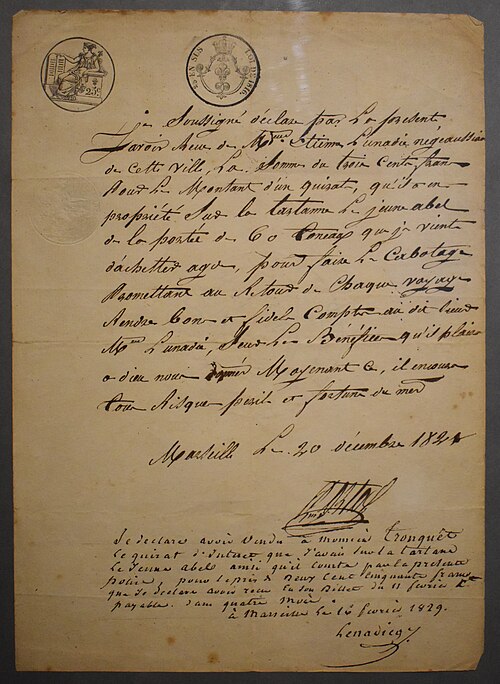 25c
EN SUS
LOI DE 1816
je Soussigné déclare par Le présent
avoir Reçu de Mr Etienne Lunadié négotiant
de cette ville, La Somme du trois Cents fran
pour Le Montant d'un quirat, qu'il a en
propriété Sur la tartanne Le jeune abel
de la portée de 60 toneaux que je viens
d'achetter ave, pour faire Le Cabotage
promettant au Retour de Chaque voyage
Rendre bon et fidel Compte au dit Sieur
Mr Lunadié, Sur Le Bénéfice qu'il plaira
a dieu nous donner Moyenant Ce, il encoure
tous Risque peril et fortune de mer
Marseille Le 20 décembre 182
Je declare avoir vendu à monsieur tronquet
Le quirat d'intret que j'avais sur la tartane
Le Jeune abel ainsi qu'il conste par la présente
police, pour le prix de Deux Cent Cinquante francs
que Je declare avoir recu en son Billet du 11 fevrier
payable dans quatre mois
à Marseille le 12 fevrier 1829.